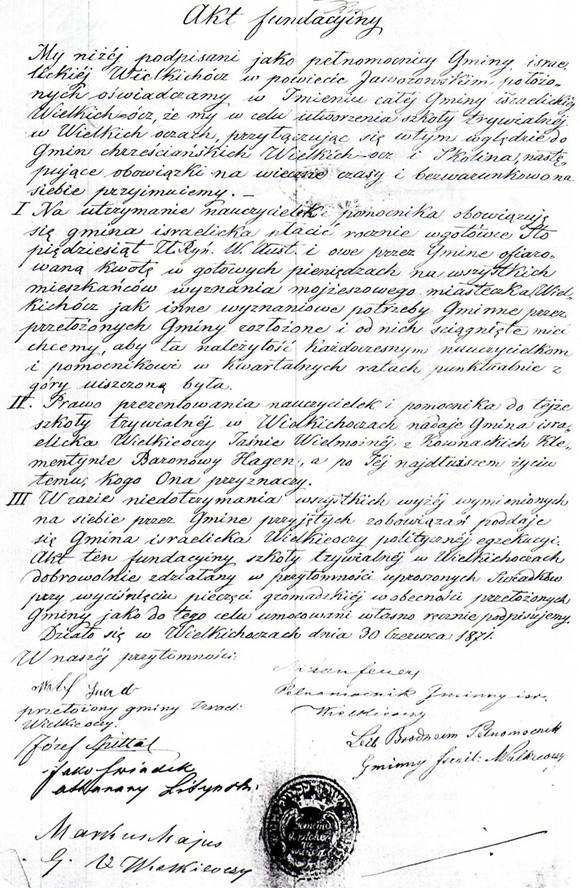 Akt fundacyjny
My niżéj podpisani jako pełnomocnicy Gminy izrae-
lickiéj Wielkichócz w powiecie Jaworowskim położo-
nych oświadczamy w Imieniu całéj Gminy iszraelickiéj
Wielkich-ócz, że my w celu utworzenia szkoły trywialnéj
w Wielkich oczach, przyłączając się wtym względzie do
Gmin chrześciańskich Wielkich-ócz i Skolina, nastę-
pujące obowiązki na wieczne czasy i bezwarunkowo na
siebie przyjmujemy. —
I Na utrzymanie nauczycielek i pomocnika obowiązuję
się gmina israelicka płacić rocznie wgotówce Sto
piędziesiąt Zł. Ryń. W. Aust. i owe przez Gminę ofiaro-
waną kwotę w gotowych pieniądzach na wszystkich
mieszkańców wyznania mojżeszowego miasteczka Wiel-
kichócz jak inne wyznaniowe potrzeby Gminne przez
przełożonych Gminy rozłożone i od nich ściągnięte mieć
chcemy, aby ta należytość każdoczesnym nauczycielkom
i pomocnikowi w kwartalnych ratach punktualnie z
góry uiszczoną była.
II. Prawo prezentowania nauczycielek i pomocnika do tejże
szkoły trywialnéj w Wielkichoczach nadaje Gmina isra-
elicka Wielkieoczy Jaśnie Wielmożnéj z Kownackich Kle-
mentynie Baronowy Hagen, a po Jéj najdłuższem życiu
temu, kogo Ona przyznaczy.
III W razie niedotrzymania wszystkich wyżéj wymienionych
na siebie przez Gminę przyjętych zobowiązań poddaje
się Gmina israelicka Wielkieoczy polityczněj egzekucyi.
Akt ten fundacyjny szkoły trywialnéj w Wielkichoczach
dobrowolnie zdziałany w przytomności uproszonych Świadków
przy wyciśnięciu pieczęci gromadskiéj w obecności przełożonych
Gminy jako do tego celu umocowani własno ręcznie podpisujemy.
Działo się w Wielkichoczach dnia 30 Czerwca 1871.
W naszéj przytomności:
przełożony gminy Izrael:
Wielkieoczy.
Józef
Jako Świadek
Litynski
Markus Majus
G. Wielkieoczy
feuer
Pełnomocnik Gminny isr.
Wielkieoczy
Leib Brodheim Pełnomocnik
Gminny Izrail: Wielkieoczy